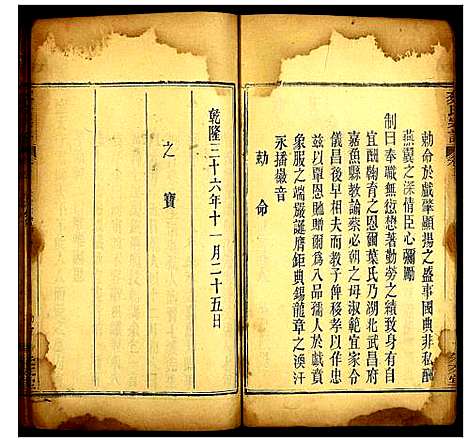 勅命於戲肇顯揚之盛事國典非私酬
燕翼之深情臣心彌勵
制曰奉職無愆懋著勤勞之績致身有自
宜酬鞠育之恩爾葉氏乃湖北武昌府
嘉魚縣教諭蔡必朝之母淑範宜家令
儀昌後早相夫而教子俾移孝以作忠
茲以覃恩貤贈爾為八品孺人於戲賁
象服之端嚴誕膺鉅典錫龍章之渙汗
永播徽音
勅命
乾隆三十六年十一月二十五日
之寶